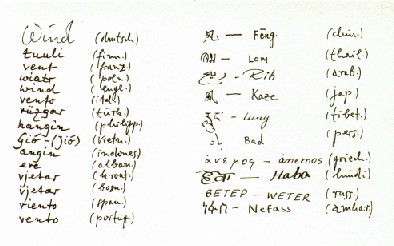 Wind (deutsch)
tuuli (finn.)
vent (franz.)
wiatr (poln.)
wind (engl.)
vento (ital.)
rüzgar (türk.)
hangin (philipp.)
gió - (jió) (vietn.)
angin (indones.)
erë (alban.)
vjetar (kroat.)
vjetar (bosn.)
viento (span.)
vento (portug.)
風 — Fēng (chin.)
ลม — Lom (thail.)
— Rih (arab.)
風 — Kaze (jap.)
— lung (tibet.)
باد Bad (pers.)
άνεμος - anemos (griech.)
हवा — Haba (hindi)
ВЕТЕР - WETER (russ.)
ነፋስ - Nefass (amhar.)